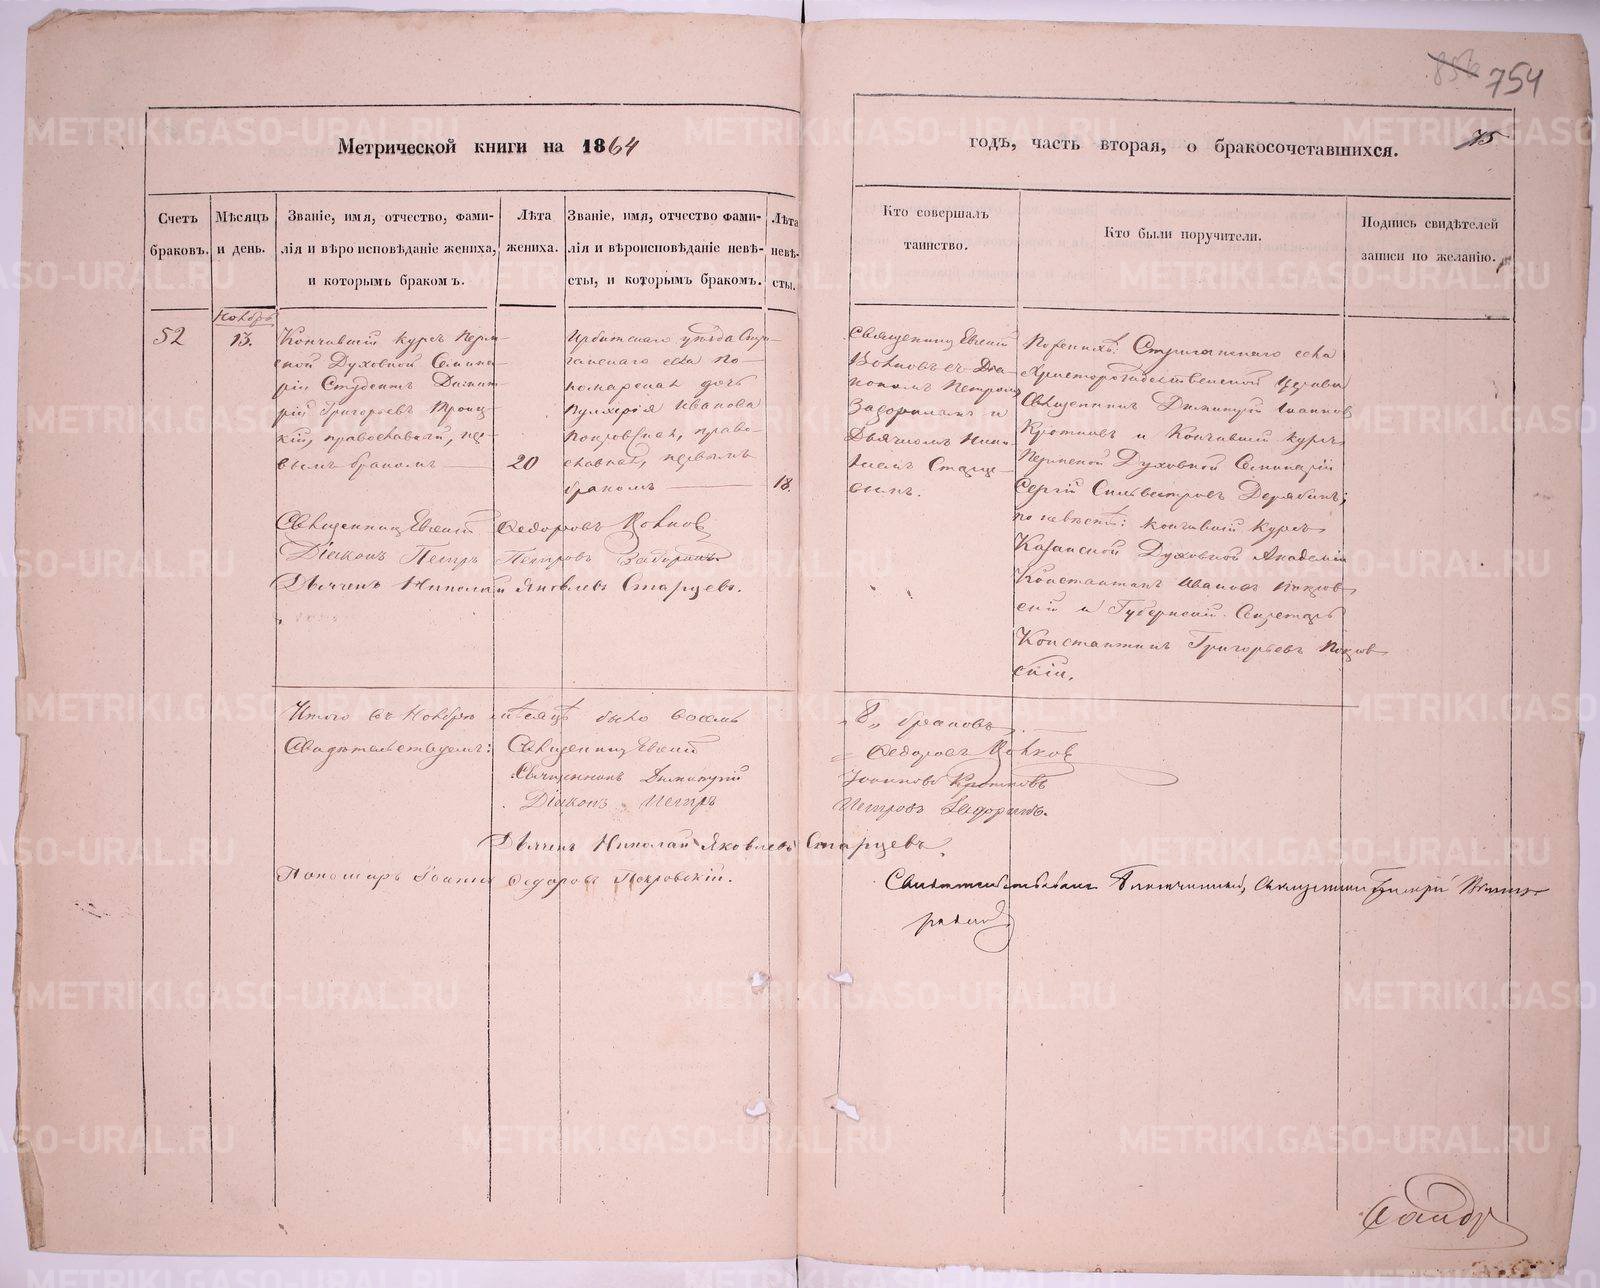 754
Метрической книги на 1864
годъ, часть вторая, о бракосочетавшихся.
75
Счетъ
браковъ.
Мѣсяцъ
и день.
Званіе, имя, отчество, фами-
лія и вѣроисповѣданіе жениха,
и которымъ бракомъ.
Лѣта
жениха.
Званіе, имя, отчество фами-
лія и вѣроисповѣданіе невѣ-
сты, и которымъ бракомъ.
Лѣта
невѣ-
сты.
Кто совершалъ
таинство.
Кто были поручители.
Подпись свидѣтелей
записи по желанію.
52
Ноябрь
13.
Кончившій курсъ Перм-
ской Духовной Семина-
ріи Студентъ Димит-
рій Григорьевъ Троиц-
кій, православный, пер-
вымъ бракомъ
20
Ирбитскаго уѣзда Стри-
ганскаго села по-
номарская дочь
Пулхерія Иванова
Покровская, право-
славная, первымъ
бракомъ
18.
Священникъ Евгеній
Волковъ съ Діа-
кономъ Петромъ
Задоринымъ и
Дьячкомъ Нико-
лаемъ Старце-
вымъ.
По женихѣ: Стриганскаго села
Христорождественской церкви
Священникъ Димитрій Іоанновъ
Кротковъ и Кончившій курсъ
Пермской Духовной Семинаріи
Сергій Сильвестровъ Дерябинъ;
по невѣстѣ: кончившій курсъ
Казанской Духовной Академіи
Константинъ Ивановъ Покров
скій и Губернскій Секретарь
Константинъ Григорьевъ Покров
скій.
Священникъ Евгеній Ѳедоровъ Волковъ
Діаконъ Петръ Петровъ Задоринъ
Дьячекъ Николай Яковлевъ Старцевъ.
Итого въ Ноябрѣ мѣсяцѣ было восемь „8„ браковъ.
Свидѣтельствуемъ: Священникъ Евгеній Ѳедоровъ Волковъ
Священникъ Димитрій Іоанновъ Кротковъ
Діаконъ Петръ Петровъ Задоринъ.
Дьячекъ Николай Яковлевъ Старцевъ.
Пономарь Іоаннъ Ѳедоровъ Покровскій.
Свидѣтельствовалъ Благочинный, Священникъ
METRIKI.GASO-URAL.RU